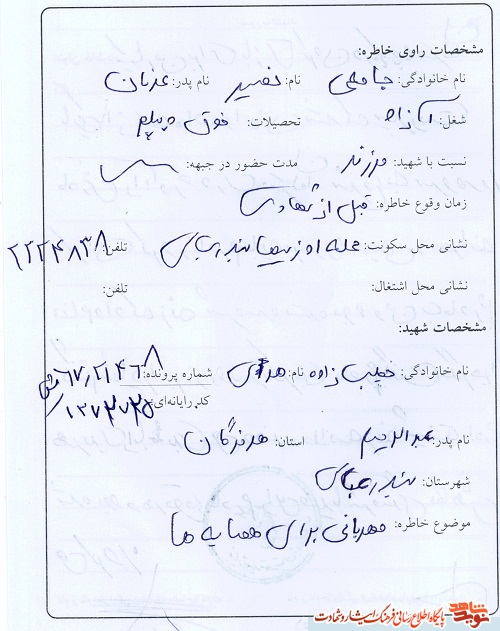 مشخصات راوی خاطره:
نام خانوادگی: جامعی نام: نصیر نام پدر: عدنان
شغل: آزاد تحصیلات: فوق دیپلم
نسبت با شهید: فرزند مدت حضور در جبهه:
زمان وقوع خاطره: قبل از شهادت
نشانی محل سکونت: محله اوزیها بندرعباس تلفن: ۲۲۲۴۸۳۸
نشانی محل اشتغال: تلفن:
مشخصات شهید:
نام خانوادگی: خطیب زاده نام: شماره پرونده: ۶۷۰۲۱۴۶۸
کد رایانه‌ای:
نام پدر: عبدالرحیم استان: هرمزگان
شهرستان: بندرعباس
موضوع خاطره: مهربانی برای همسایه ها
نوید شاهد پایگاه اطلاع رسانی فرهنگ ایثار و شهادت